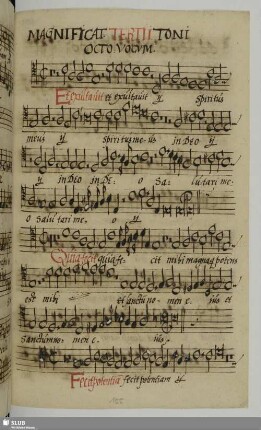 MAGNIFICAT TERTII TONI
OCTO VOCVM.
Et exultavit et exultavit ij spiritus
meus ij spiritus meus in DEO ij
ij in DEO in DE: o Sa: lutari me:
o salutari me, o ij
Quia fecit quia fe: cit mihi magna potens
est mihi et sanctū no: men e: ius et
sanctum no: men e: ius.
Fecit potentiā fecit potentiam ij
SLUB